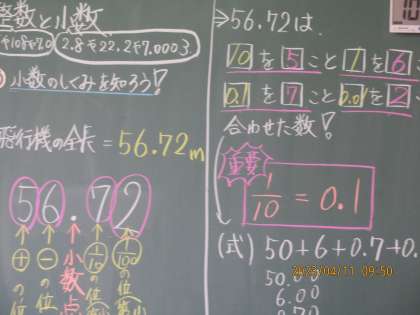 整数と小数
2.8や22.2や7.0003
小数のしくみを知ろう!
飛行機の全長=56.72m
56.72
十の位
一の位
小数点
1/10の位
1/100の位
⇒56.72は、
10を5こと 1を6
0.1を7こと 0.01を2
合わせた数!
重要
1/10 = 0.1
(式) 50+6+0.7+0.
50.00
6.00
0.70
2023/04/11 09:50
10